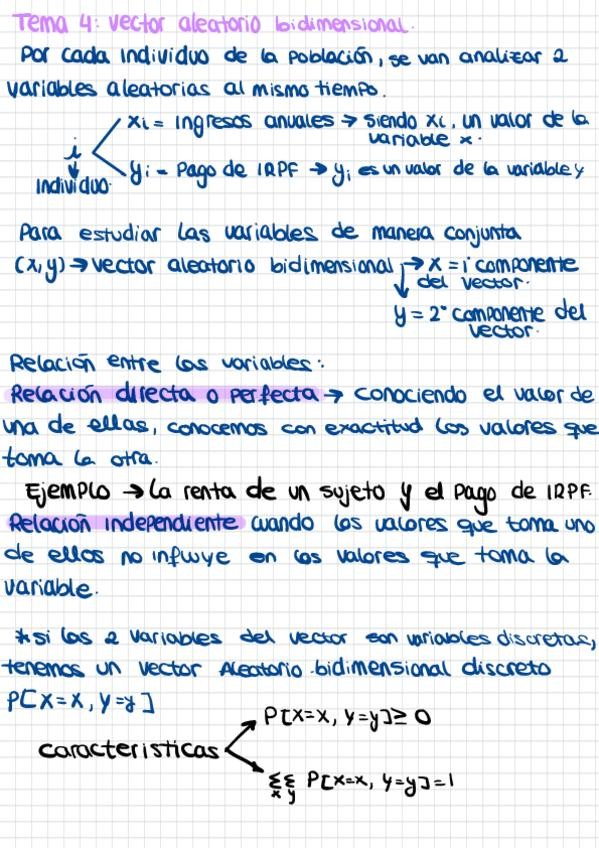 Tema 4: vector aleatorio bidimensional.
Por cada individuo de la población, se van analizar 2
variables aleatorias al mismo tiempo.
xi = ingresos anuales → siendo xi, un valor de la
variable x.
i
individuo.
yi = Pago de IRPF → yi es un valor de la variable y
Para estudiar las variables de manera conjunta
(x,y) → vector aleatorio bidimensional → x = 1° componente
del vector.
y = 2° componente del
vector.
Relación entre las variables:
Relación directa o perfecta → conociendo el valor de
una de ellas, conocemos con exactitud los valores que
toma la otra.
Ejemplo → La renta de un sujeto y el pago de IRPF.
Relación independiente cuando los valores que toma uno
de ellos no influye en los valores que toma la
variable.
*si las 2 variables del vector son variables discretas,
tenemos un vector Aleatorio bidimensional discreto
P[X=x, Y=y]
P[X=x, Y=y] ≥ 0
caracteristicas
Σx Σy P[X=x, Y=y]=1